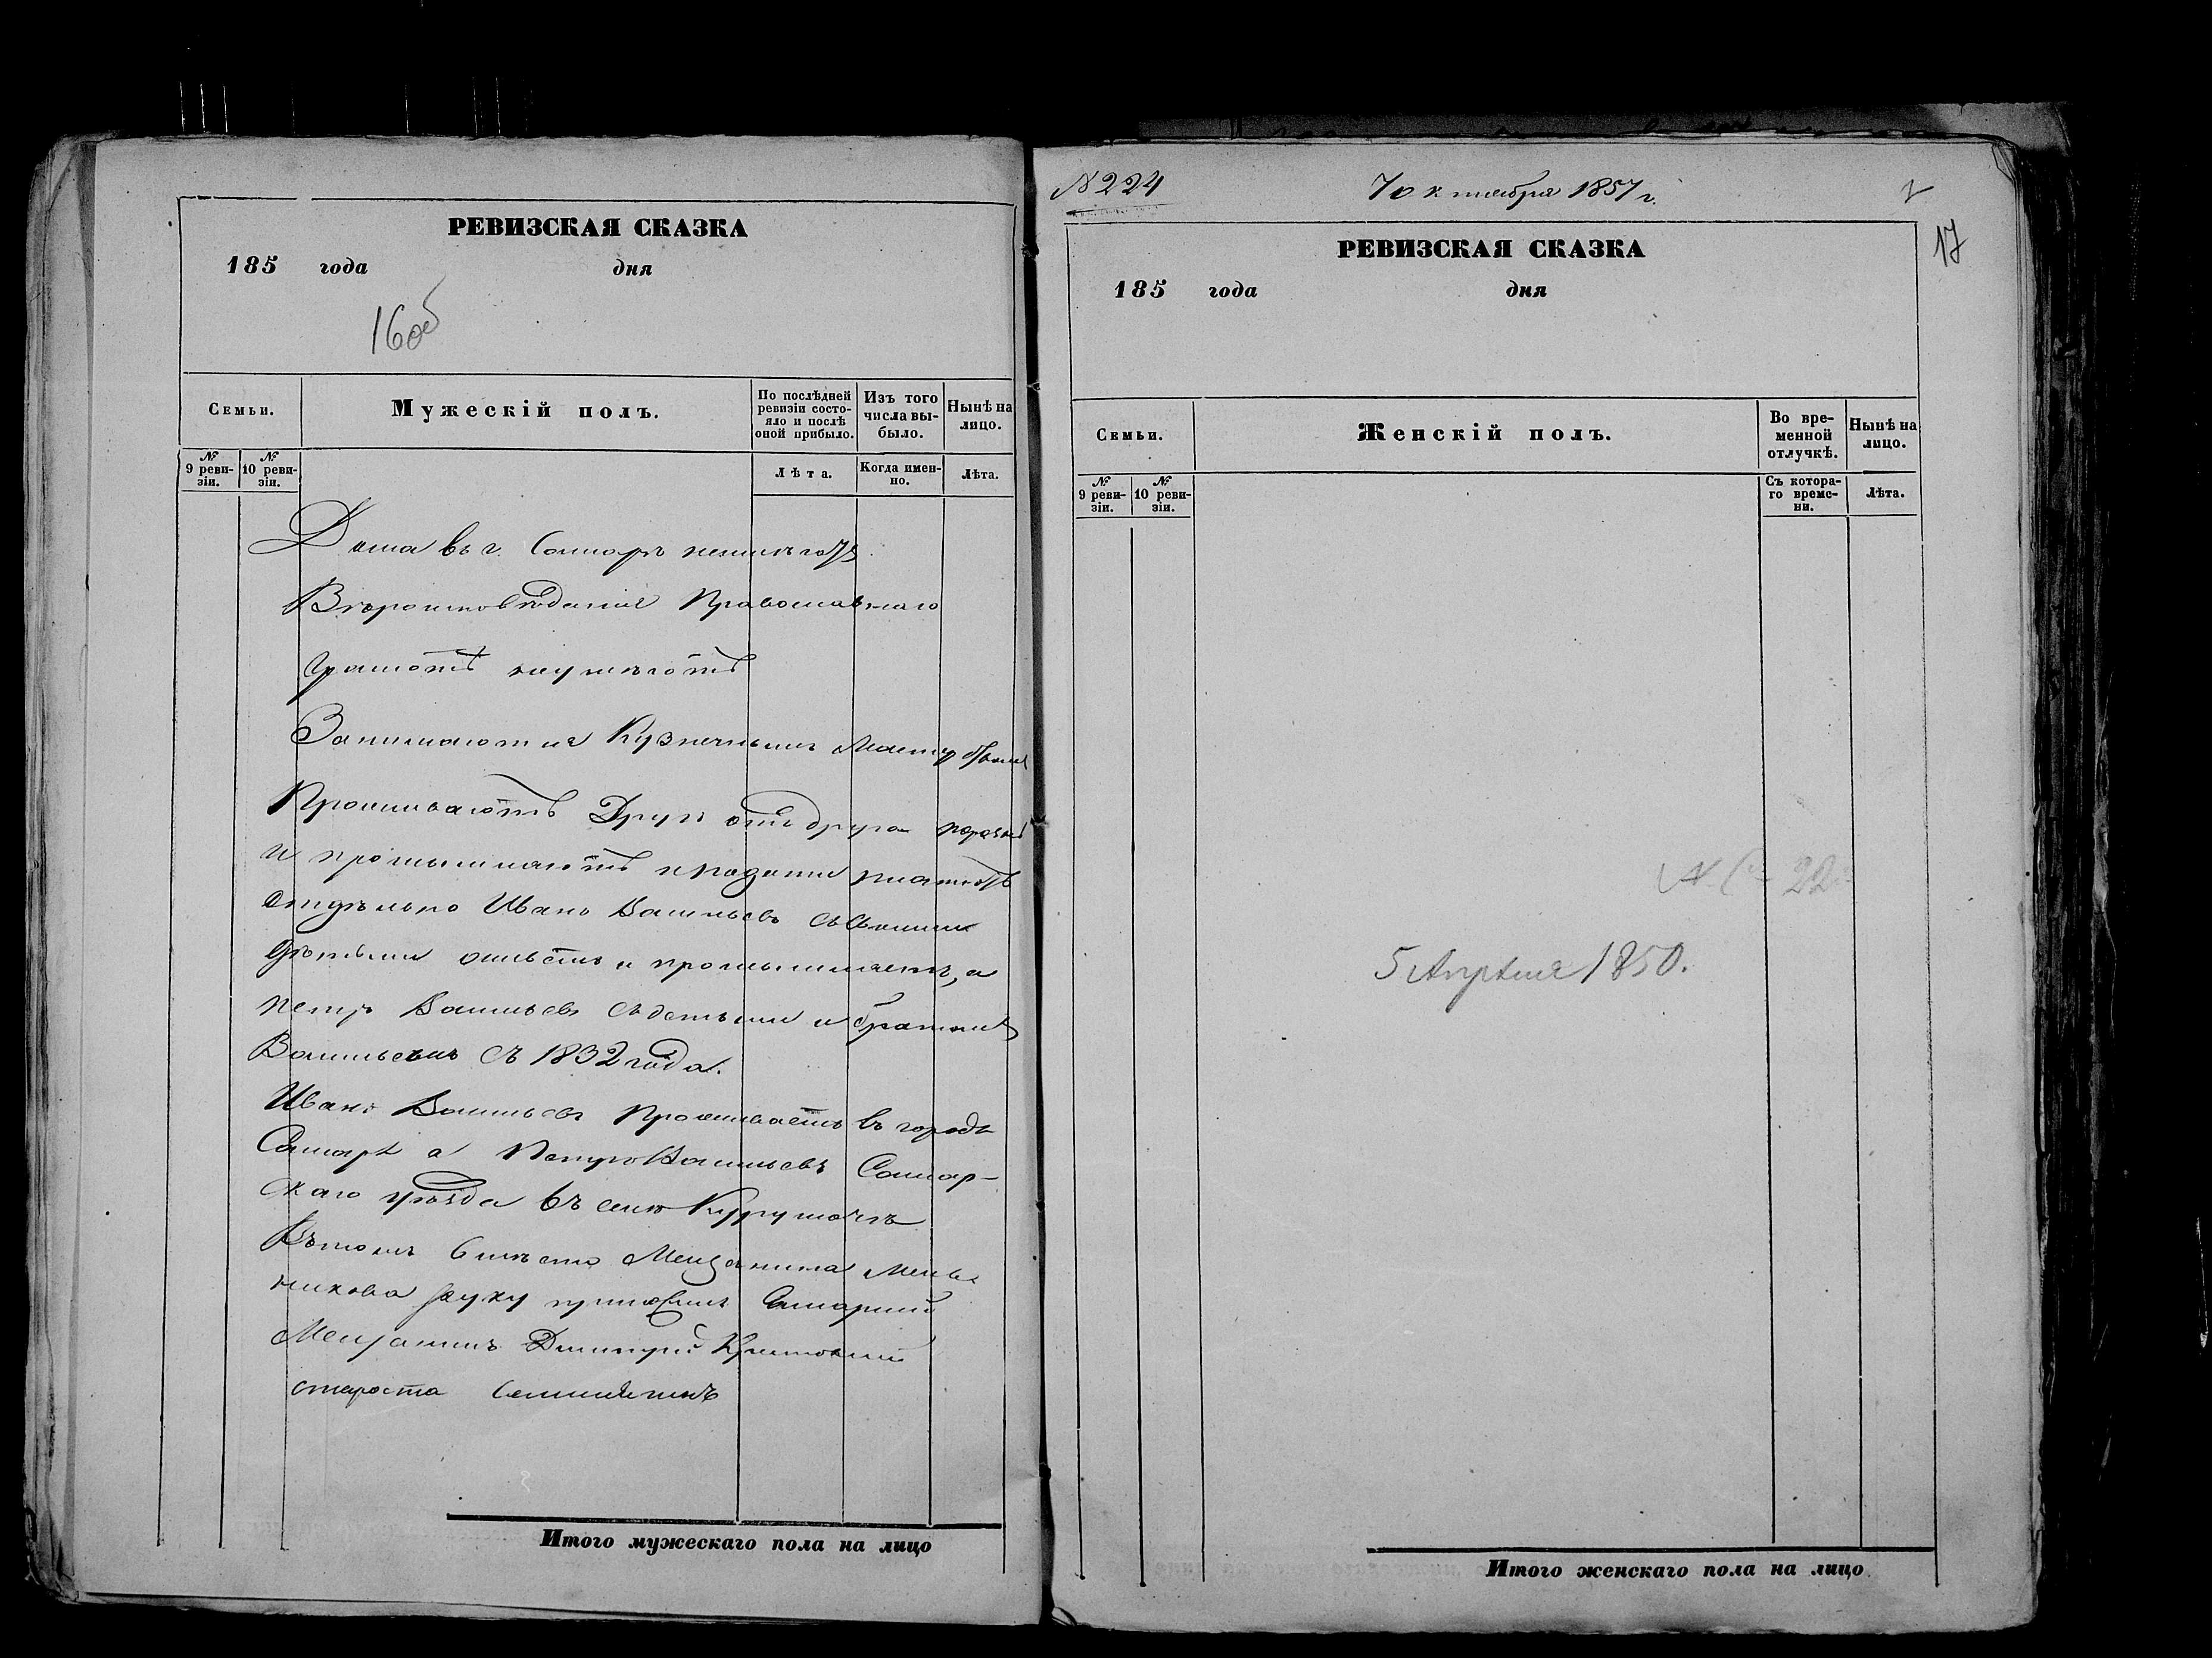 РЕВИЗСКАЯ СКАЗКА
185 года дня
16об
Семьи.
Мужескій полъ.
По послѣдней ревизіи состояло и послѣ оной прибыло.
Изъ того числа выбыло.
Нынѣ на лицо.
№ 9 ревизіи.
№ 10 ревизіи.
Лѣта.
Когда именно.
Лѣта.
Дома въ г. Самарѣ неимѣютъ
Вѣроисповѣданія Православнаго
Грамотѣ неумѣютъ
Занимаются Кузнечнымъ
Проживаютъ Другъ отъ друга
и промышляютъ и подати платютъ
отдѣльно Иванъ Васильевъ съ своими
дѣтьми живетъ и промышляетъ, а
Петръ Васильевъ съ детьми и братомъ
Васильемъ съ 1832 года.
Иванъ Васильевъ Проживаетъ въ городѣ
Самарѣ а Петръ Васильевъ Самар-
скаго уѣзда въ селѣ Курумочѣ
Въ томъ вместо Мещанина Мель-
никова руку приложилъ Самарскій
Мещанинъ Дмитрій
староста
Итого мужескаго пола на лицо
№ 224
7 октября 1857 г.
17
РЕВИЗСКАЯ СКАЗКА
185 года дня
Семьи.
Женскій полъ.
Во временной отлучкѣ.
Нынѣ на лицо.
№ 9 ревизіи.
№ 10 ревизіи.
Съ котораго времени.
Лѣта.
5 Апреля 1850.
Итого женскаго пола на лицо